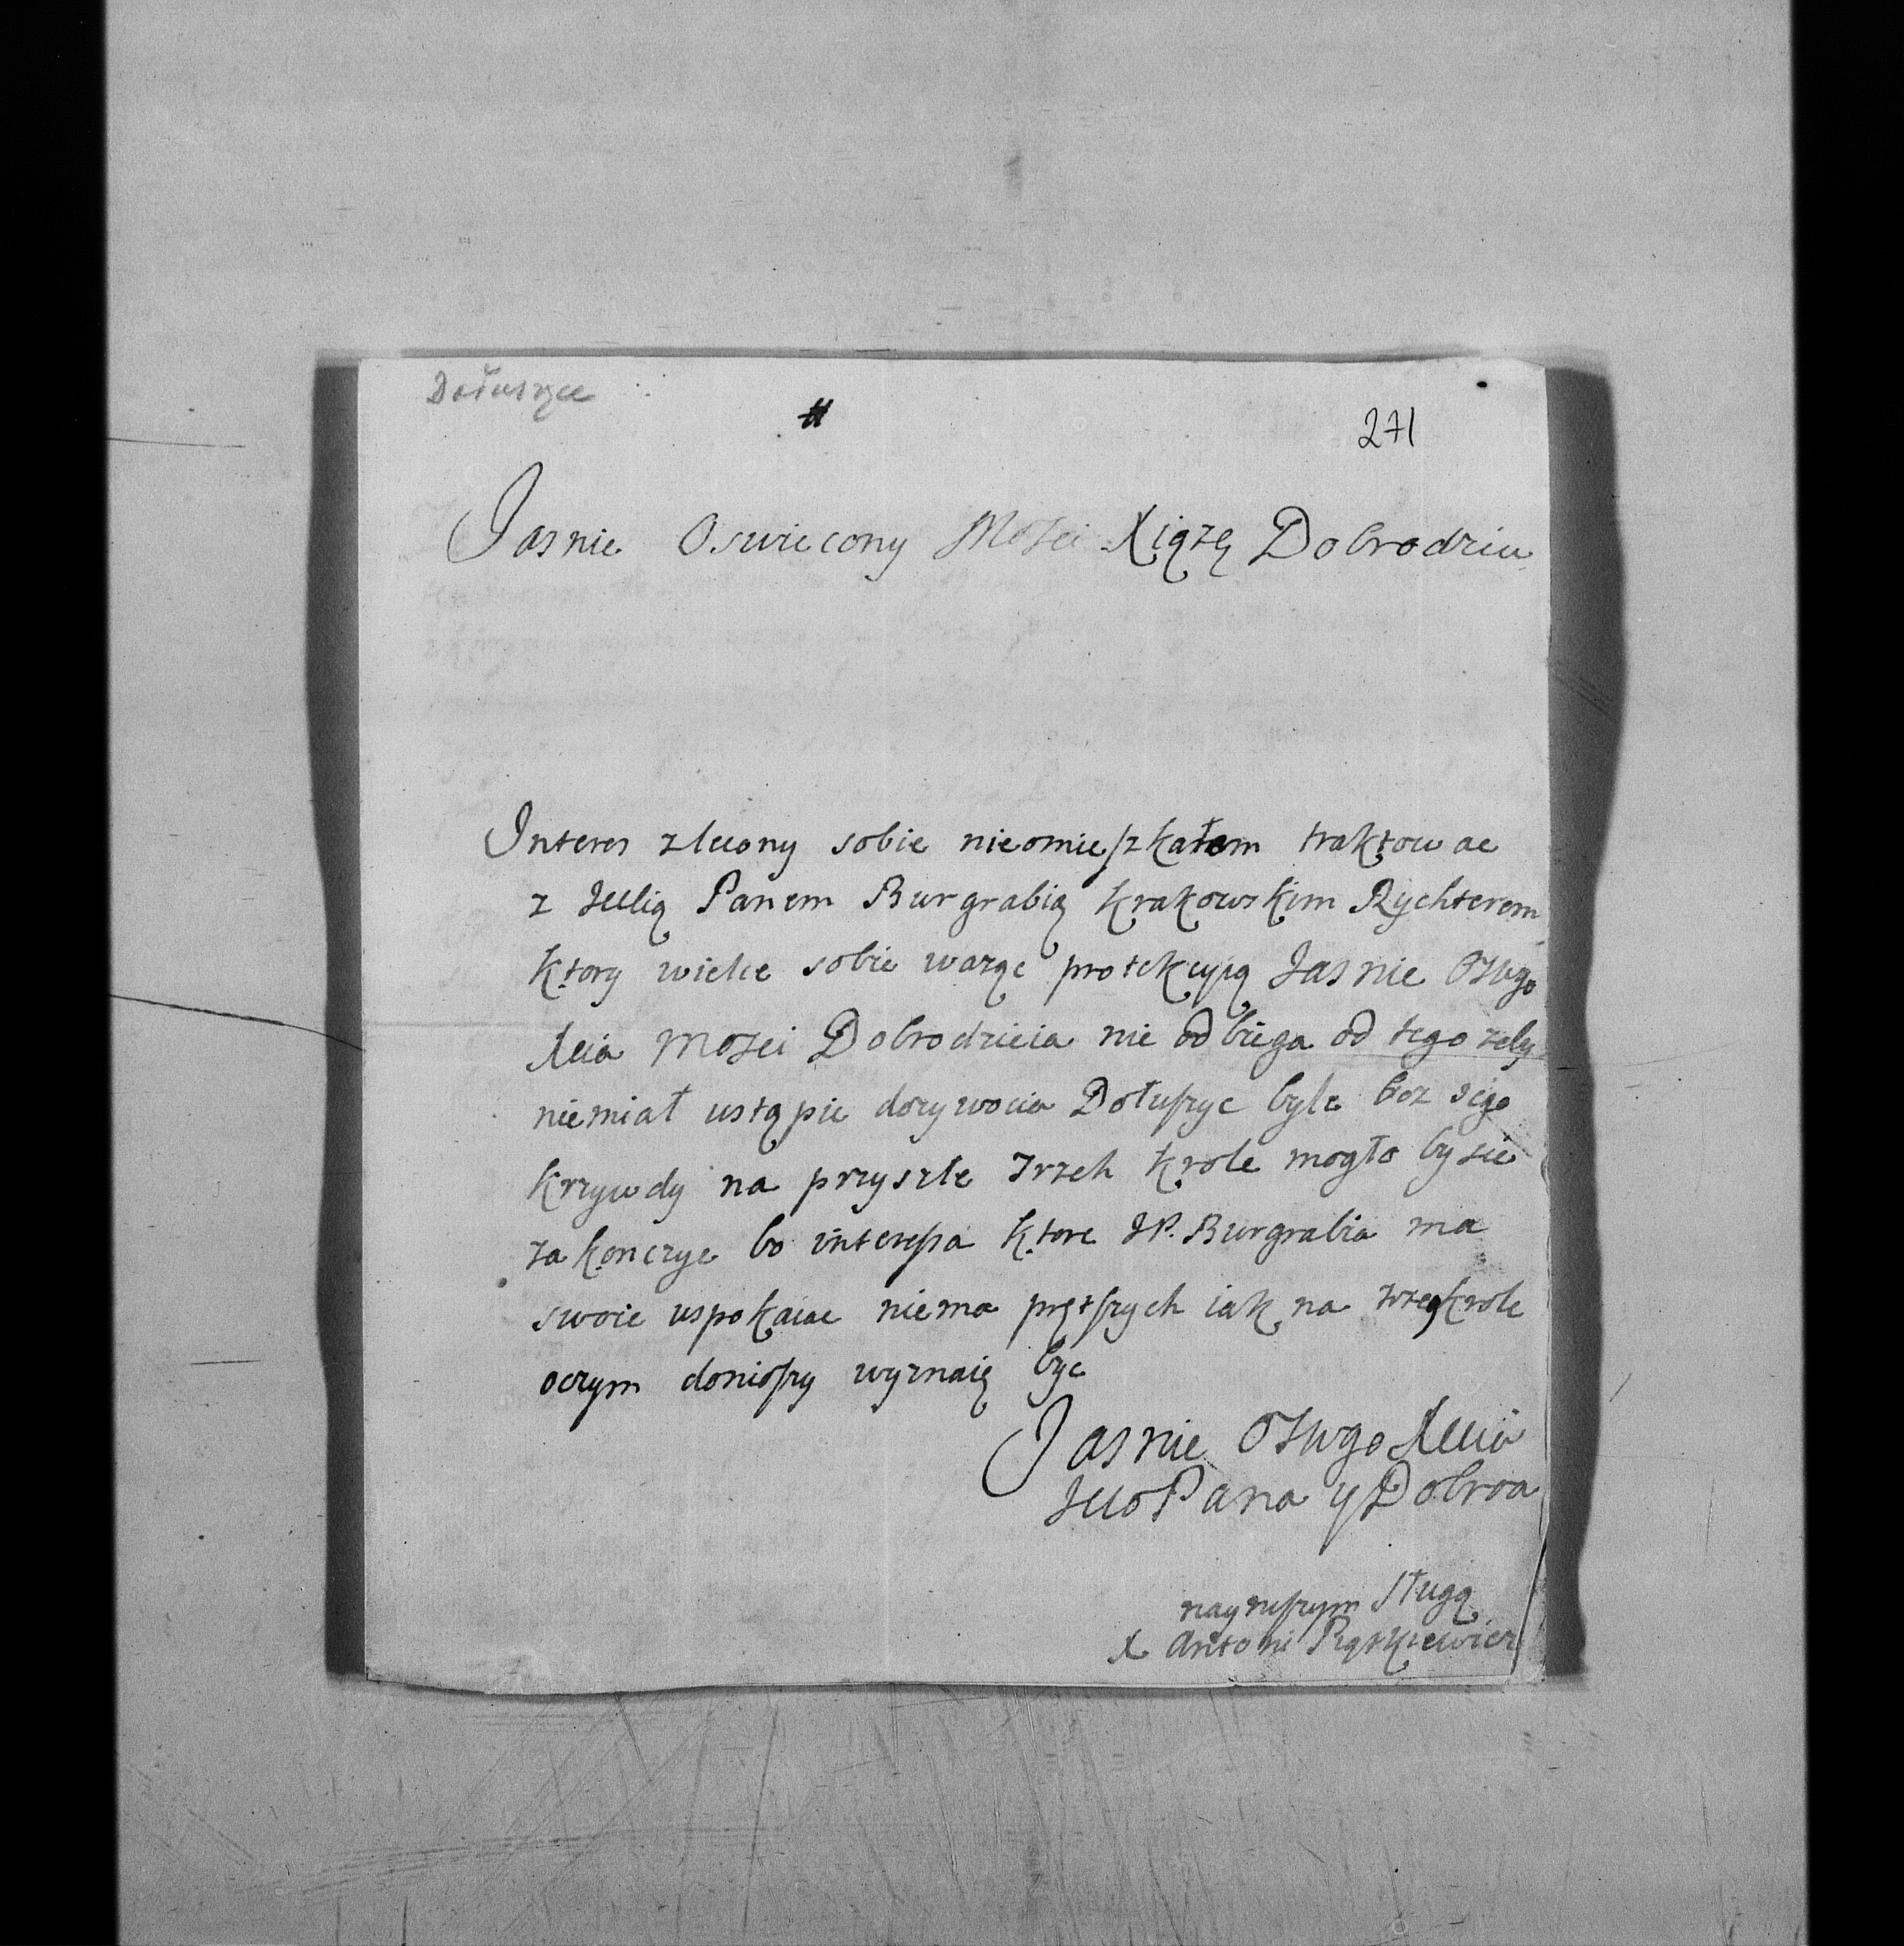 Dołuszyce
#
271
Jasnie Oswiecony Mosci Xiązę Dobrodzieu
Interes zlecony sobie nieomieszkałem traktowac
z Jmcią Panem Burgrabią Krakowskim Rychterem
ktory wielce sobie warząc protekcyią Jasnie Oswgo
Xcia Mosci Dobrodzieia nie odbiega od tego zeby
niemiał ustąpic dozywocia Dołuszyc byle bez iego
krzywdy na przyszłe Trzech Krole mogło by sie
zakonczyc bo interessa ktore JP. Burgrabia ma
swoie uspokaiac niema prętszych iak na trzech krole
oczym doniosszy wyznaię byc
Jasnie Oswgo Xcia
Jmo Pana y Dobroa
nayniszym Sługą
X Antoni